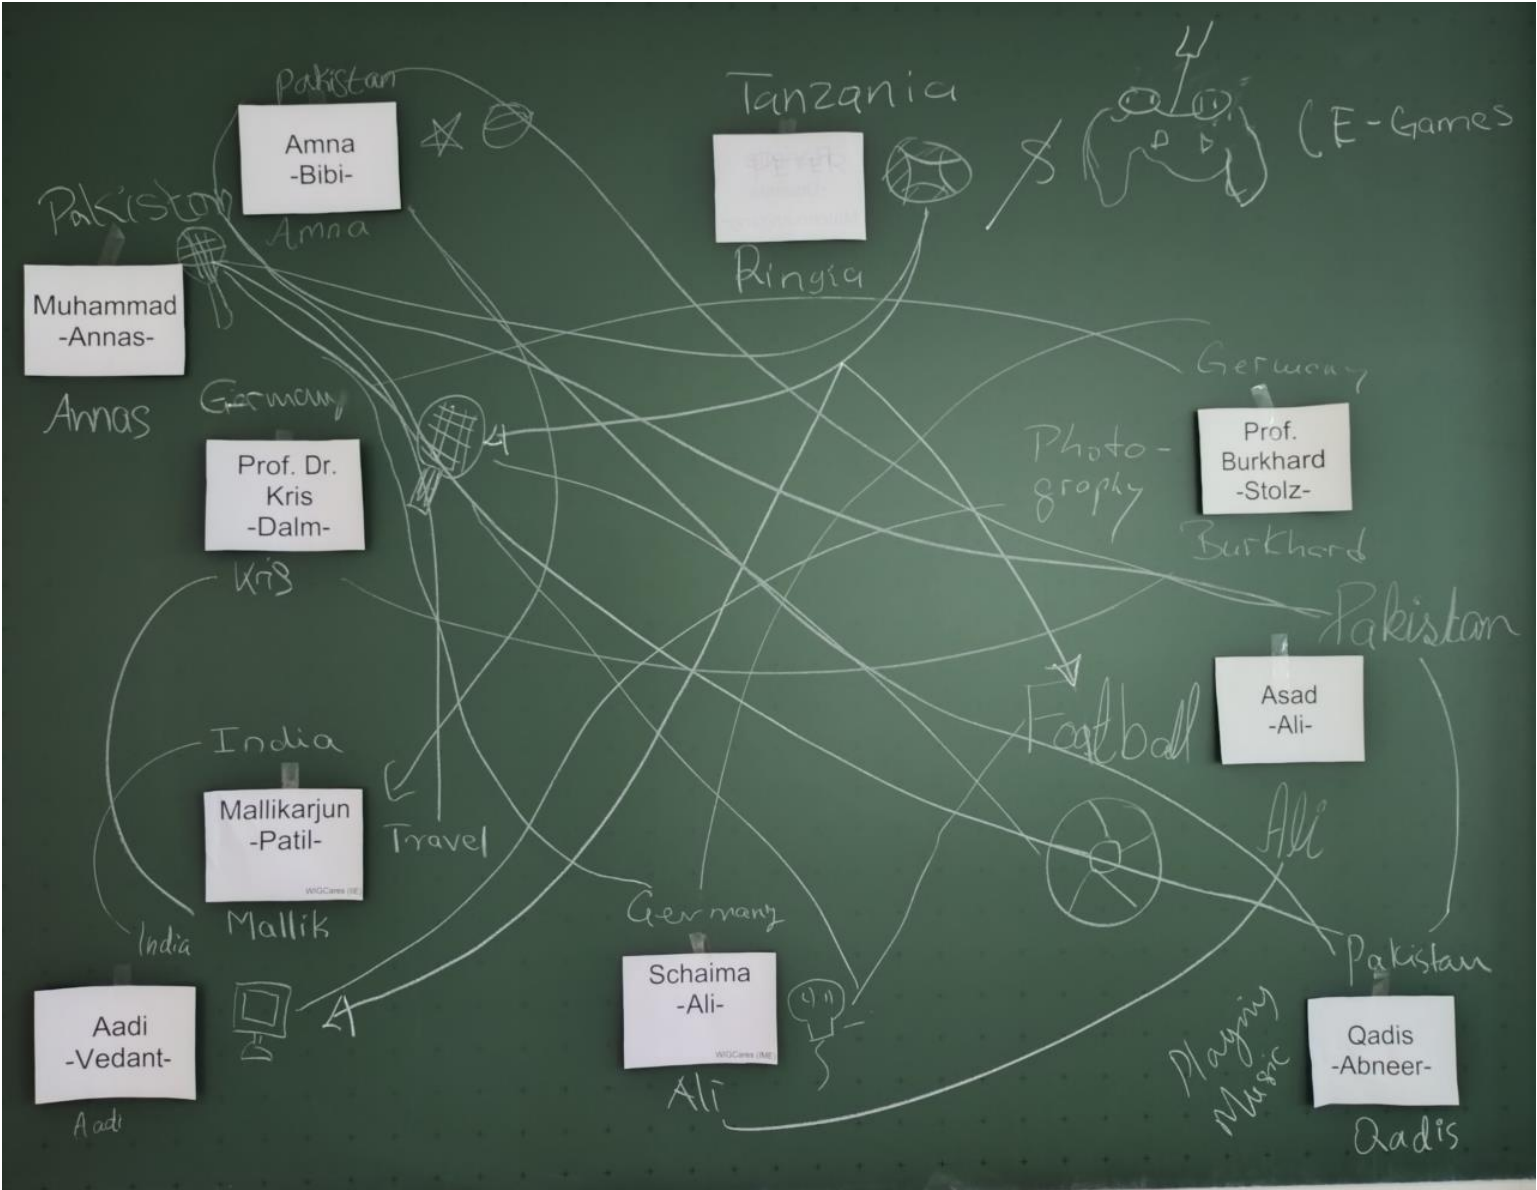 Pakistan
Amna
-Bibi-
Amna
Tanzania
Ringia
(E-Games
Pakistan
Muhammad
-Annas-
Annas
Germany
Prof. Dr.
Kris
-Dalm-
Kris
Germany
Prof.
Burkhard
-Stolz-
Burkhard
Photo-
graphy
Pakistan
Asad
-Ali-
Ali
Football
India
Mallikarjun
-Patil-
WIGCares (IIE)
Mallik
Travel
India
Aadi
-Vedant-
Aadi
Germany
Schaima
-Ali-
WIGCares (IME)
Ali
Pakistan
Qadis
-Abneer-
Qadis
Playing
Music